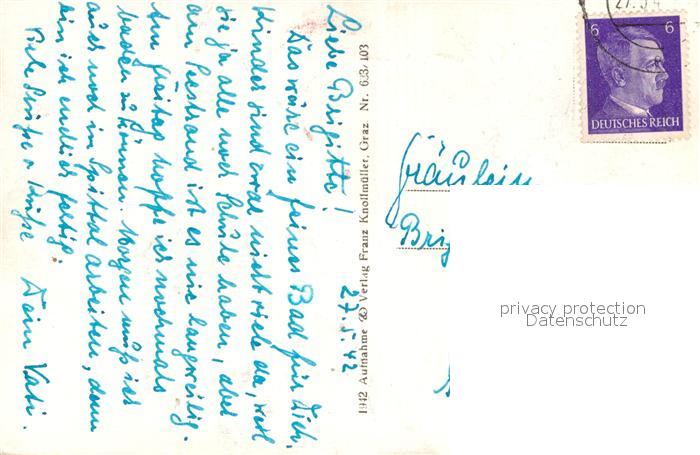 27.5.42
Liebe Brigitte!
Das wäre ein feines Bad für Dich.
Kinder sind zwar nicht viele da, weil
sie ja alle noch Schule haben, aber
am Seestrand ist es nie langweilig.
Am Freitag hoffe ich nochmals
baden zu können. Morgen muß ich
auch noch in Spittal arbeiten, dann
bin ich endlich fertig.
Viele Grüße u Küsse Dein Vati.
1942 Aufnahme & Verlag Franz Knollmüller, Graz Nr. 633/103
27.5.4
6 6
DEUTSCHES REICH
Fräulein
Brig
privacy protection
Datenschutz